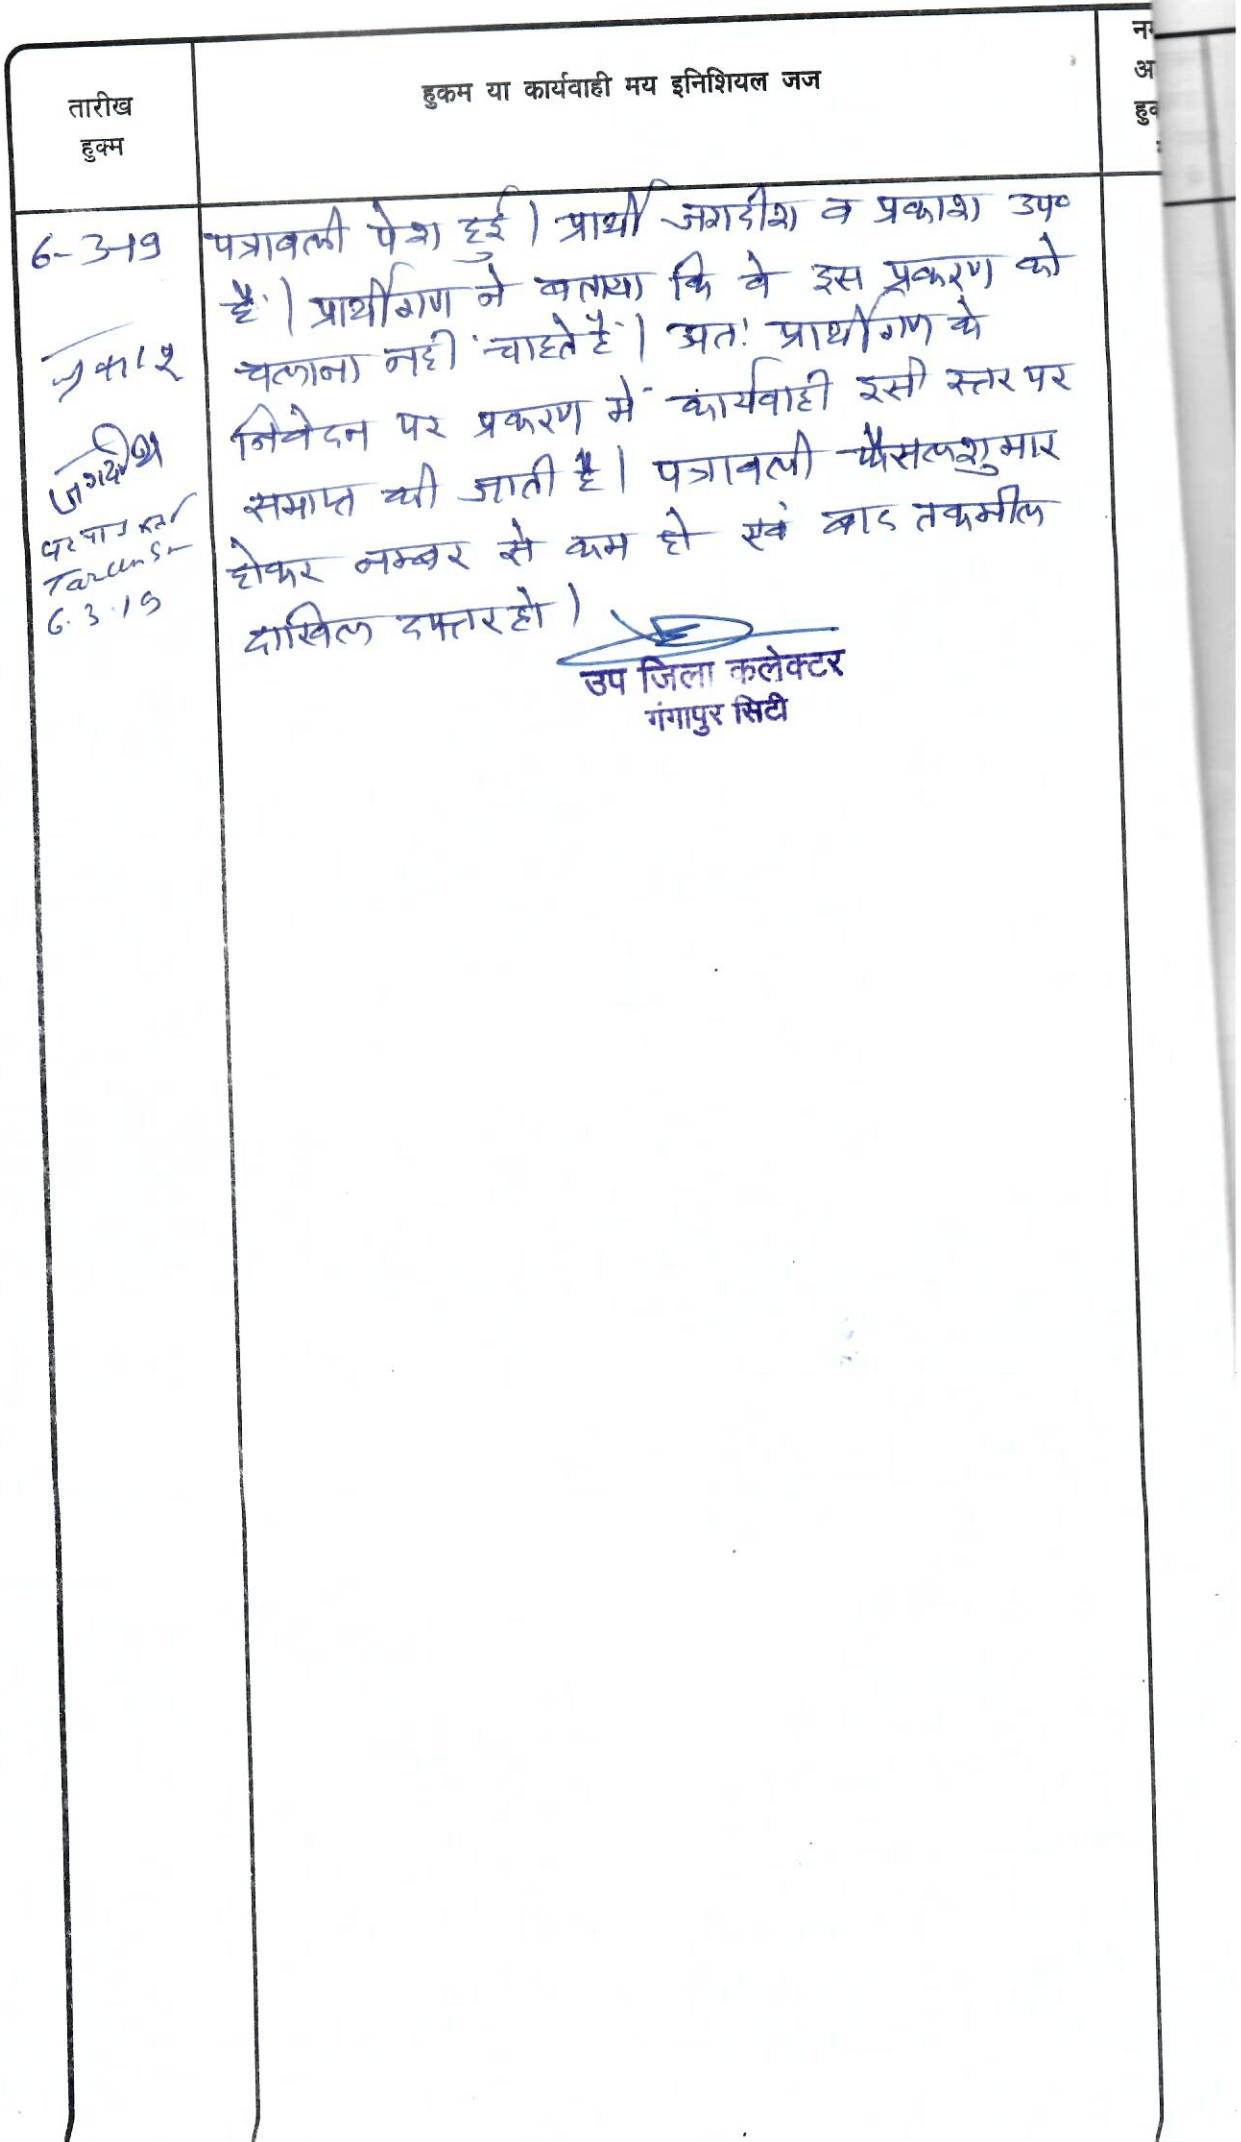 तारीख
हुक्म
हुकम या कार्यवाही मय इनिशियल जज
न
अ
हु
6-3-19
पत्रावली पेश हुई। प्रार्थी जगदीश व प्रकाश उप०
है। प्रार्थीगण ने बताया कि वे इस प्रकरण को
चलाना नहीं चाहते है। अतः प्रार्थीगण के
निवेदन पर प्रकरण में कार्यवाही इसी स्तर पर
समाप्त की जाती है। पत्रावली फैसलशुमार
होकर नम्बर से कम हो एवं बाद तकमील
दाखिल दफ्तर हो।
प्रकाश
जगदीश
6.3.19
उप जिला कलेक्टर
गंगापुर सिटी